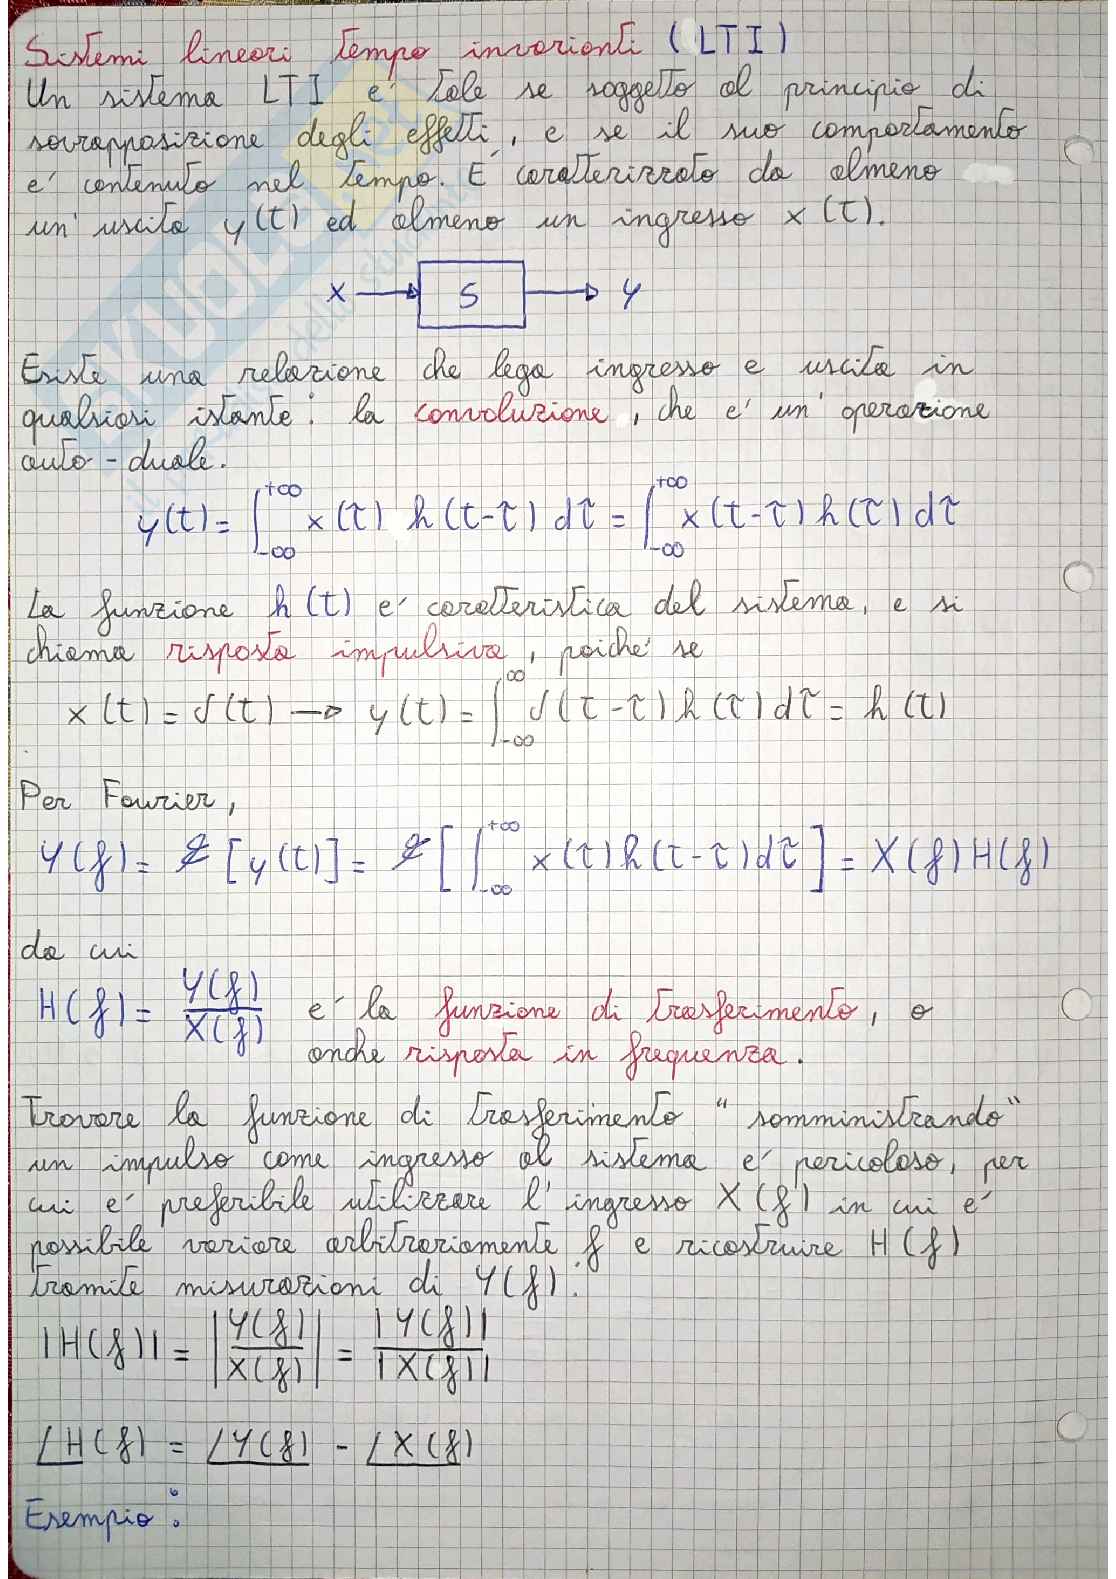 Sistemi lineari tempo invarianti (LTI)
Un sistema LTI e' tale se soggetto al principio di
sovrapposizione degli effetti, e se il suo comportamento
e' contenuto nel tempo. E' caratterizzato da almeno
un' uscita y(t) ed almeno un ingresso x(t).
x → S → y
Esiste una relazione che lega ingresso e uscita in
qualsiasi istante: la convoluzione, che e' un' operazione
auto-duale.
y(t) = ∫_{-∞}^{+∞} x(τ) h(t-τ) dτ = ∫_{-∞}^{+∞} x(t-τ) h(τ) dτ
La funzione h(t) e' caratteristica del sistema, e si
chiama risposta impulsiva, poiche' se
x(t) = δ(t) → y(t) = ∫_{-∞}^{∞} δ(τ-τ) h(τ) dτ = h(t)
Per Fourier,
Y(f) = ℱ[y(t)] = ℱ[∫_{-∞}^{+∞} x(τ) h(t-τ) dτ] = X(f) H(f)
da cui
H(f) = Y(f)/X(f) e' la funzione di trasferimento, o
anche risposta in frequenza.
Trovare la funzione di trasferimento "somministrando"
un impulso come ingresso al sistema e' pericoloso, per
cui e' preferibile utilizzare l' ingresso X(f) in cui e'
possibile variare arbitrariamente f e ricostruire H(f)
tramite misurazioni di Y(f):
|H(f)| = |Y(f)/X(f)| = |Y(f)|/|X(f)|
∠H(f) = ∠Y(f) - ∠X(f)
Esempio: